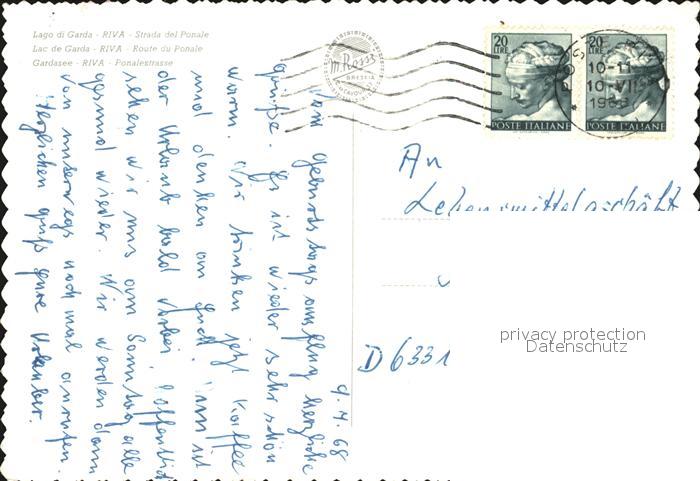 Lago di Garda - RIVA - Strada del Ponale
Lac de Garda - RIVA - Route du Ponale
Gardasee - RIVA - Ponalestrasse
M. Rossi
BRESCIA
20 LIRE
POSTE ITALIANE
20 LIRE
POSTE ITALIANE
10-11
10-VII
1968
An
Lebensmittelgeschäft
D 6331
privacy protection
Datenschutz
9.7.68
Vom Geburtstagsausflug herzliche
Grüße. Es ist wieder sehr schön
warm. Wir trinken jetzt Kaffee
und denken an Euch.
der Urlaub bald vorbei. Hoffentlich
sehen wir uns am Sonntag alle
gesund wieder. Wir werden dann
von unterwegs noch mal anrufen.
Herzlichen Gruß Eure Urlauber.